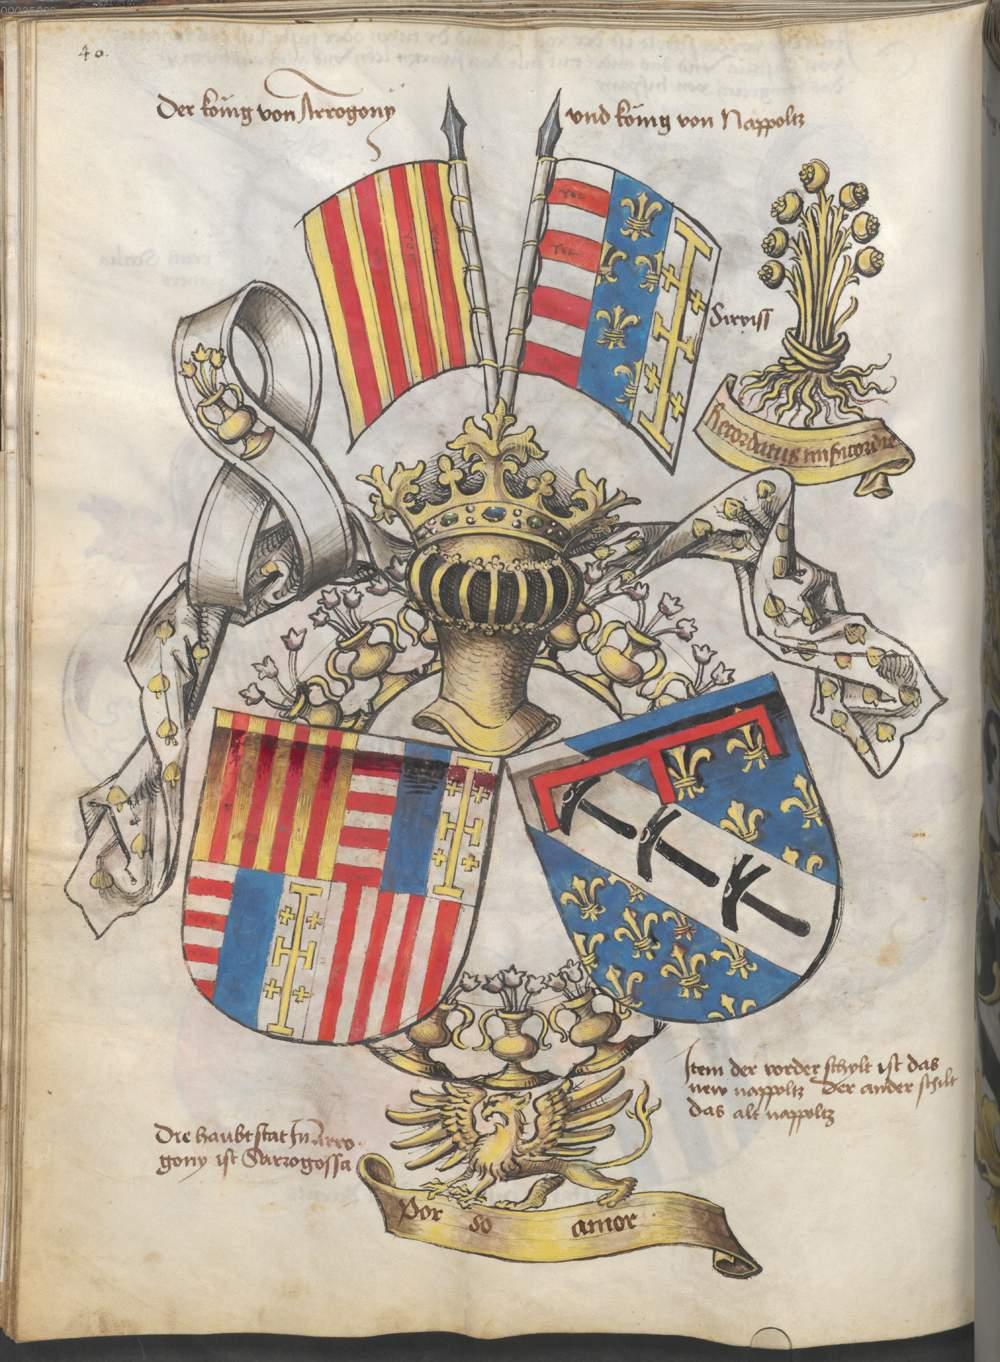 40.
Der könig von Arrogony
vnd könig von Nappoltz
rot
rot
Recordatus misericordie
Item der vorder schylt ist das
new nappoltz der ander schilt
das alt nappoltz
Die haubtstat In arro
gony ist Sarrogossa
Por so amor